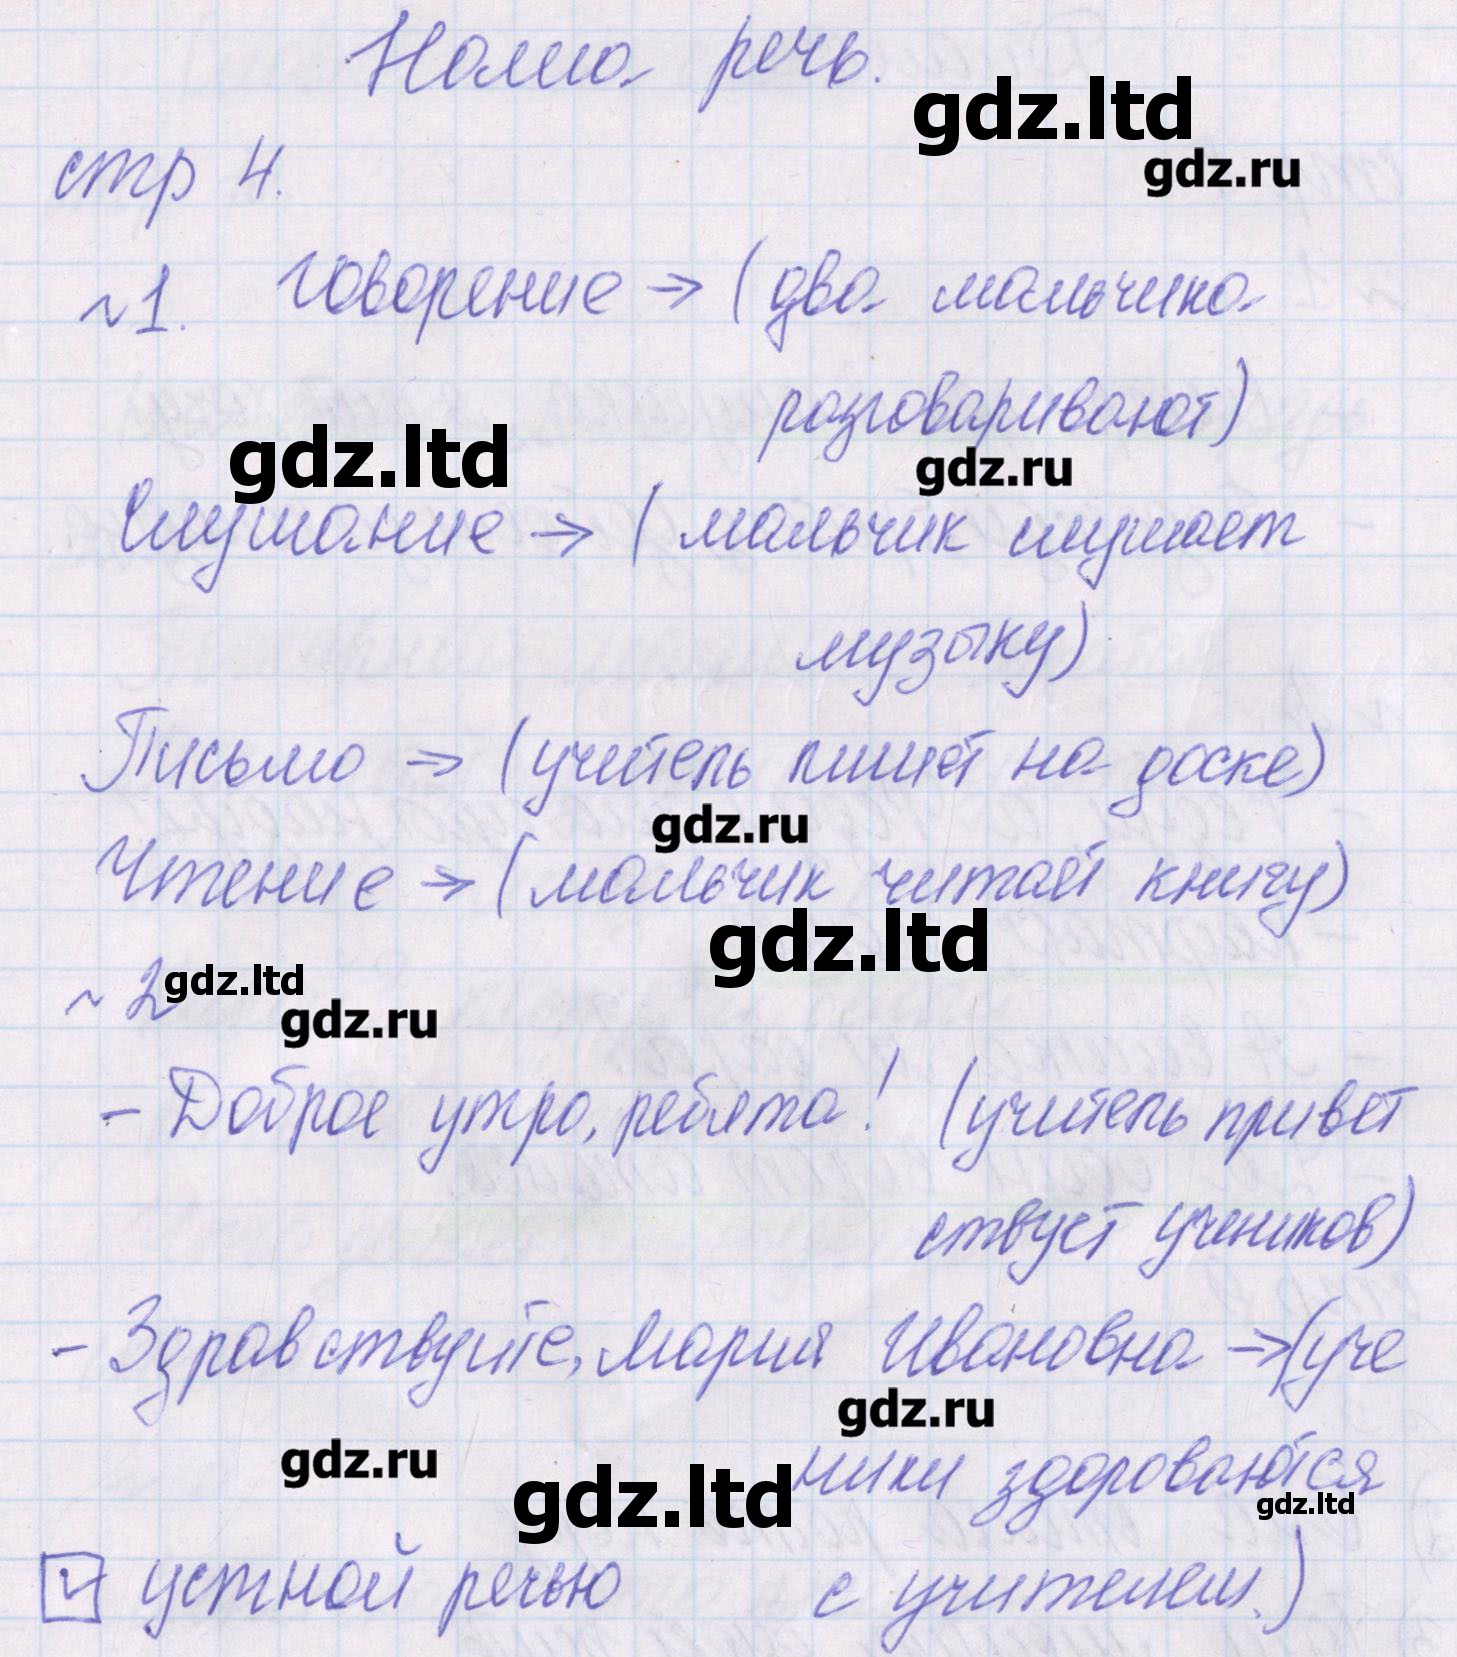 Наша речь.
gdz.ltd
gdz.ru
стр 4.
№1. Говорение → (два мальчика
разговаривают)
gdz.ltd
gdz.ru
Слушание → (мальчик слушает
музыку)
Письмо → (учитель пишет на доске)
gdz.ru
Чтение → (мальчик читает книгу)
gdz.ltd
№ 2
gdz.ltd
gdz.ru
- Доброе утро, ребята! (учитель привет
ствует учеников)
- Здравствуйте, Мария Ивановна → (уче
gdz.ru
ники здороваются
gdz.ru
gdz.ltd
gdz.ltd
✓ устной речью с учителем.)